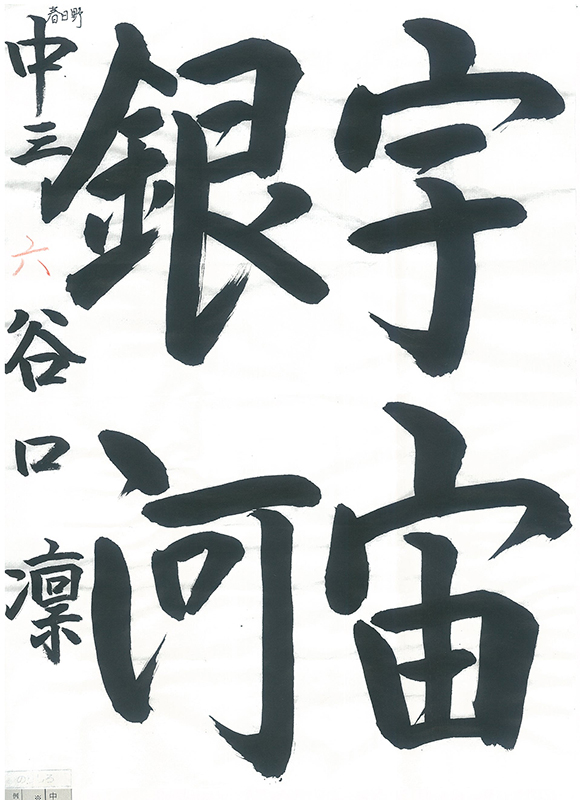 宇宙
銀河
春日野
中三 六 谷口 凛